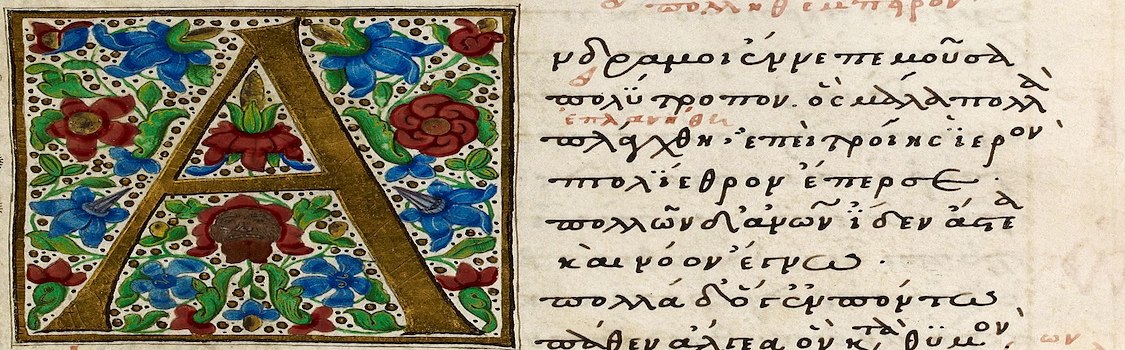 Α
νδρα μοι ἔννεπε μοῦσα
πολΰτροπον. ὃς μάλα πολλὰ
ἐπλανήθη
πλάγχθη, ἐπεὶ τροίης ϊερὸν
πτολΐεθρον ἔπερσε.
πολλῶν δ' ἀνων ἴδεν ἄστεα
καὶ νόον ἔγνω.
πολλὰ δ' ὅγ' ἐν πόντω
πάθεν ἄλγεα ὃν κτὰ θϋμὸν